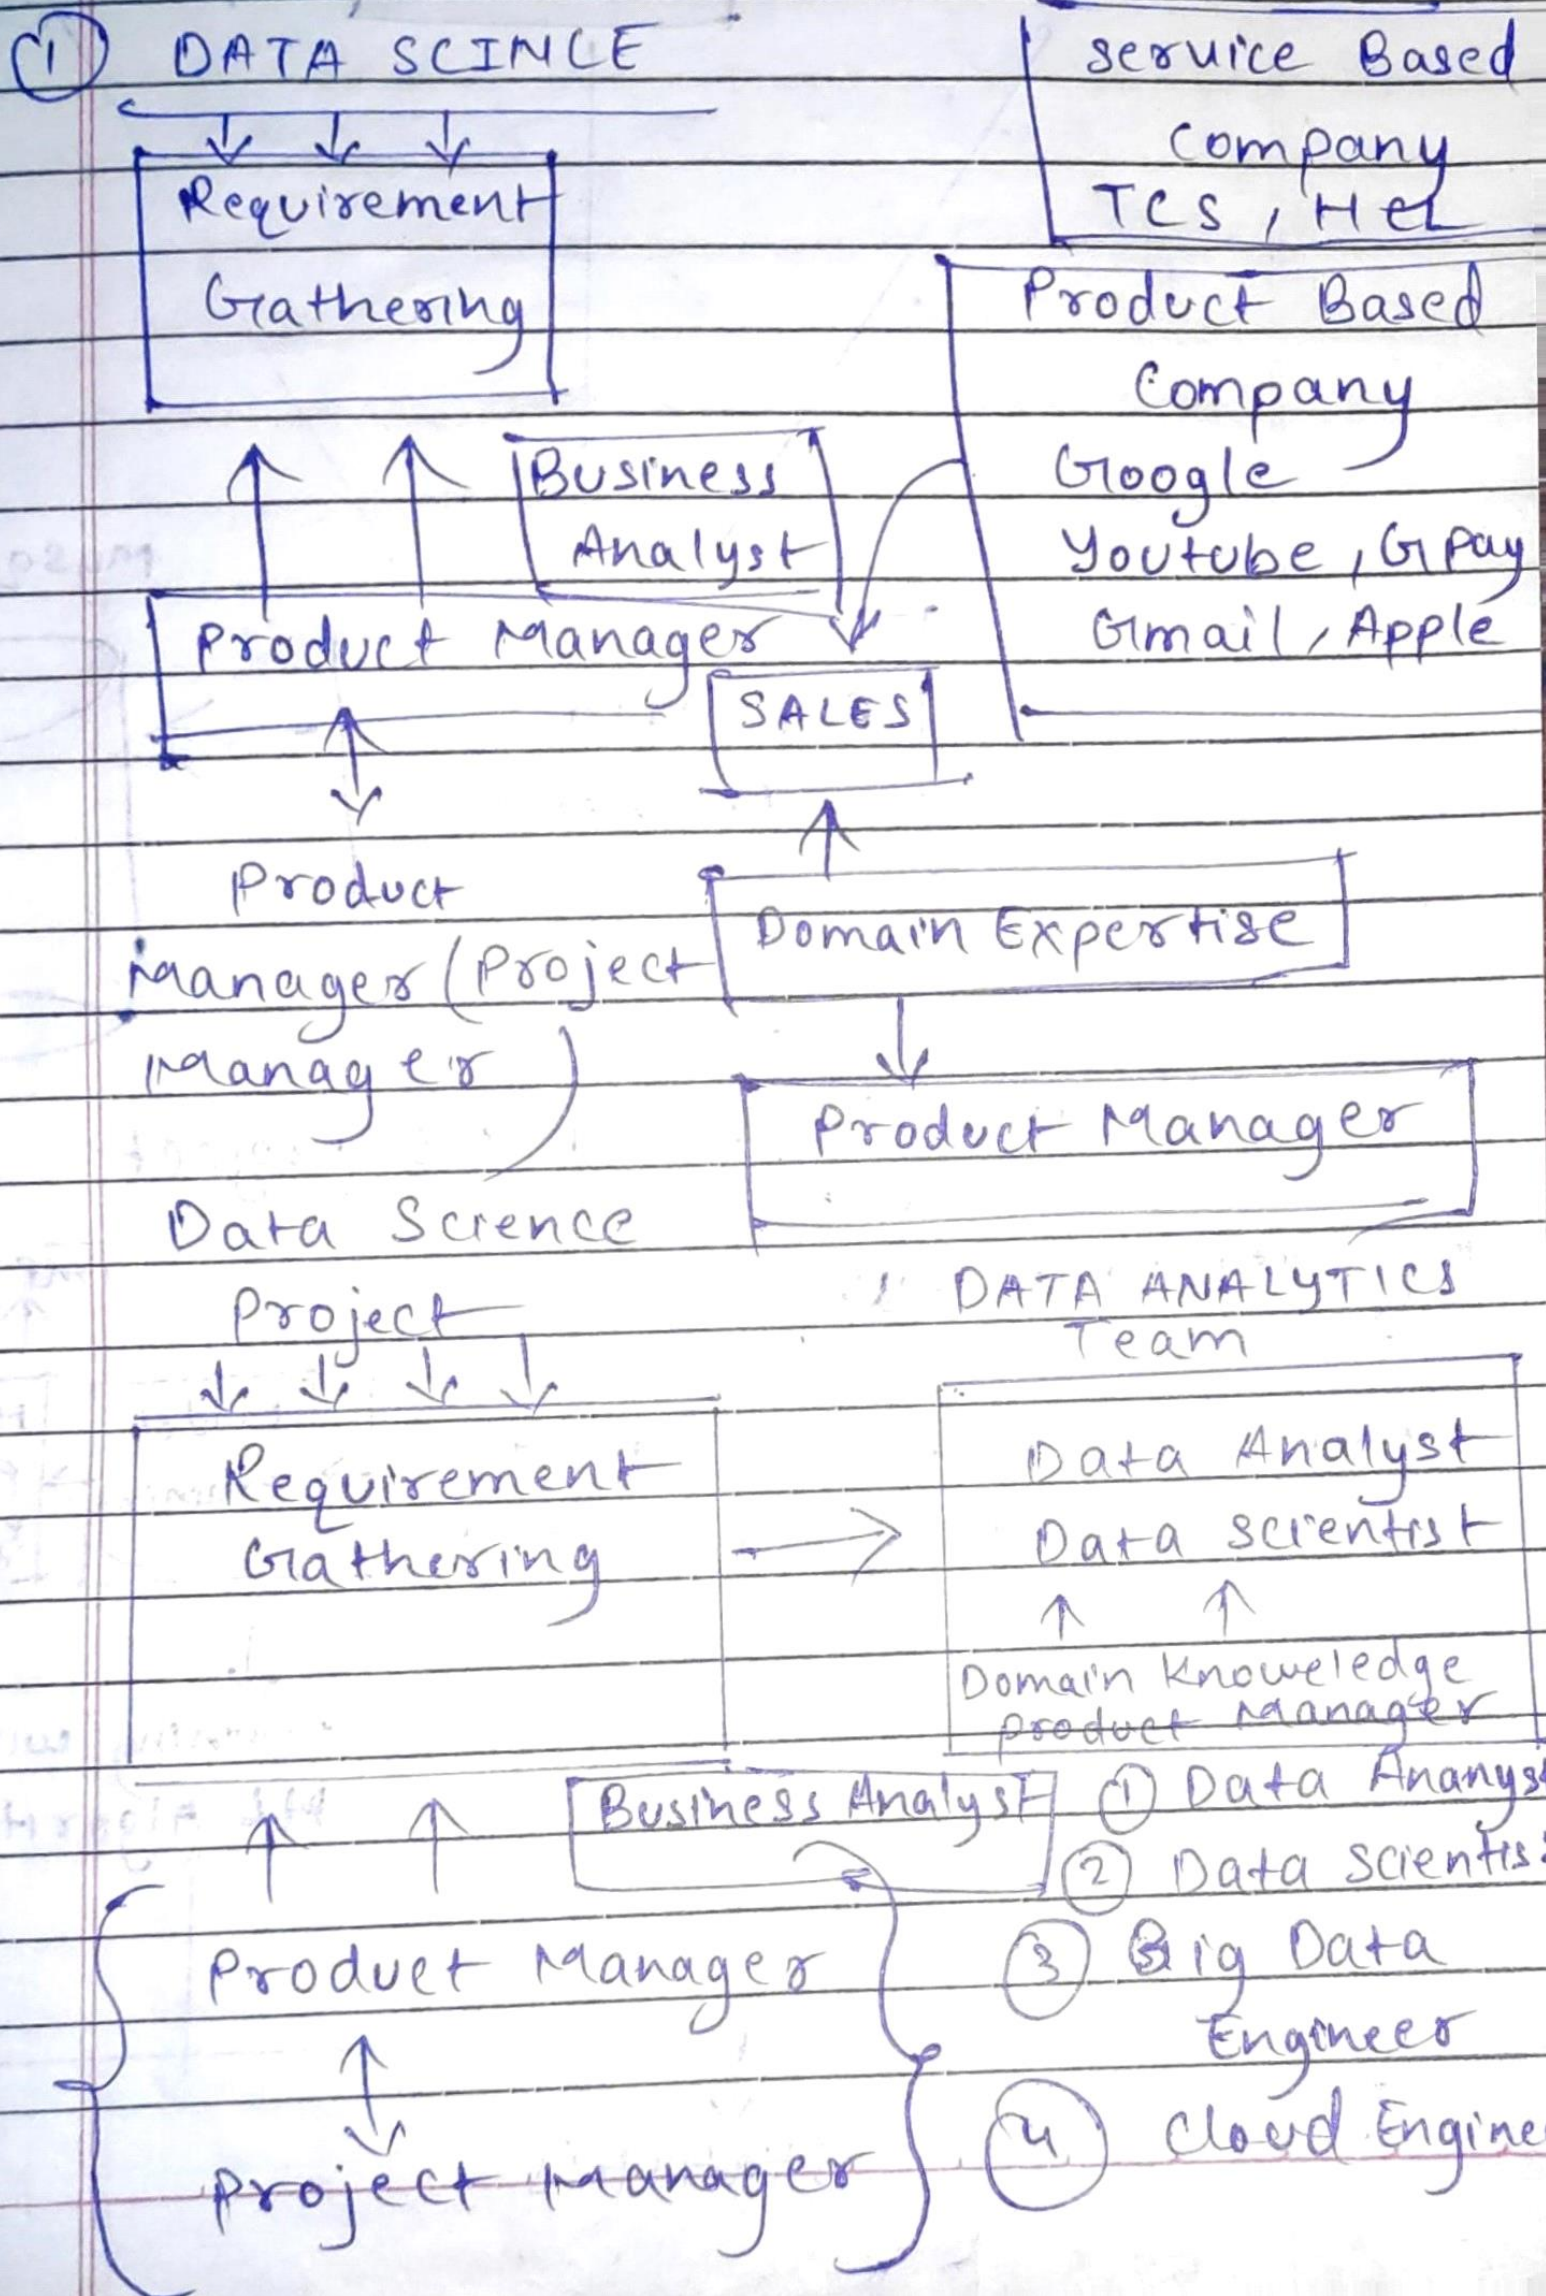 1 DATA SCINCE
Requirement
Gathering
service Based
Company
TCS, HCL
Product Based
Company
Google
Youtube, Gpay
Gmail, Apple
Business
Analyst
Product Manager
SALES
Product
Manager (Project
Manager)
Domain Expertise
Product Manager
Data Science
Project
DATA ANALYTICS
Team
Requirement
Gathering
Data Analyst
Data scientist
Domain Knoweledge
Product Manager
Business Analyst
Product Manager
Project Manager
1 Data Ananys
2 Data scientis
3 Big Data
Engineer
4 Cloud Engine